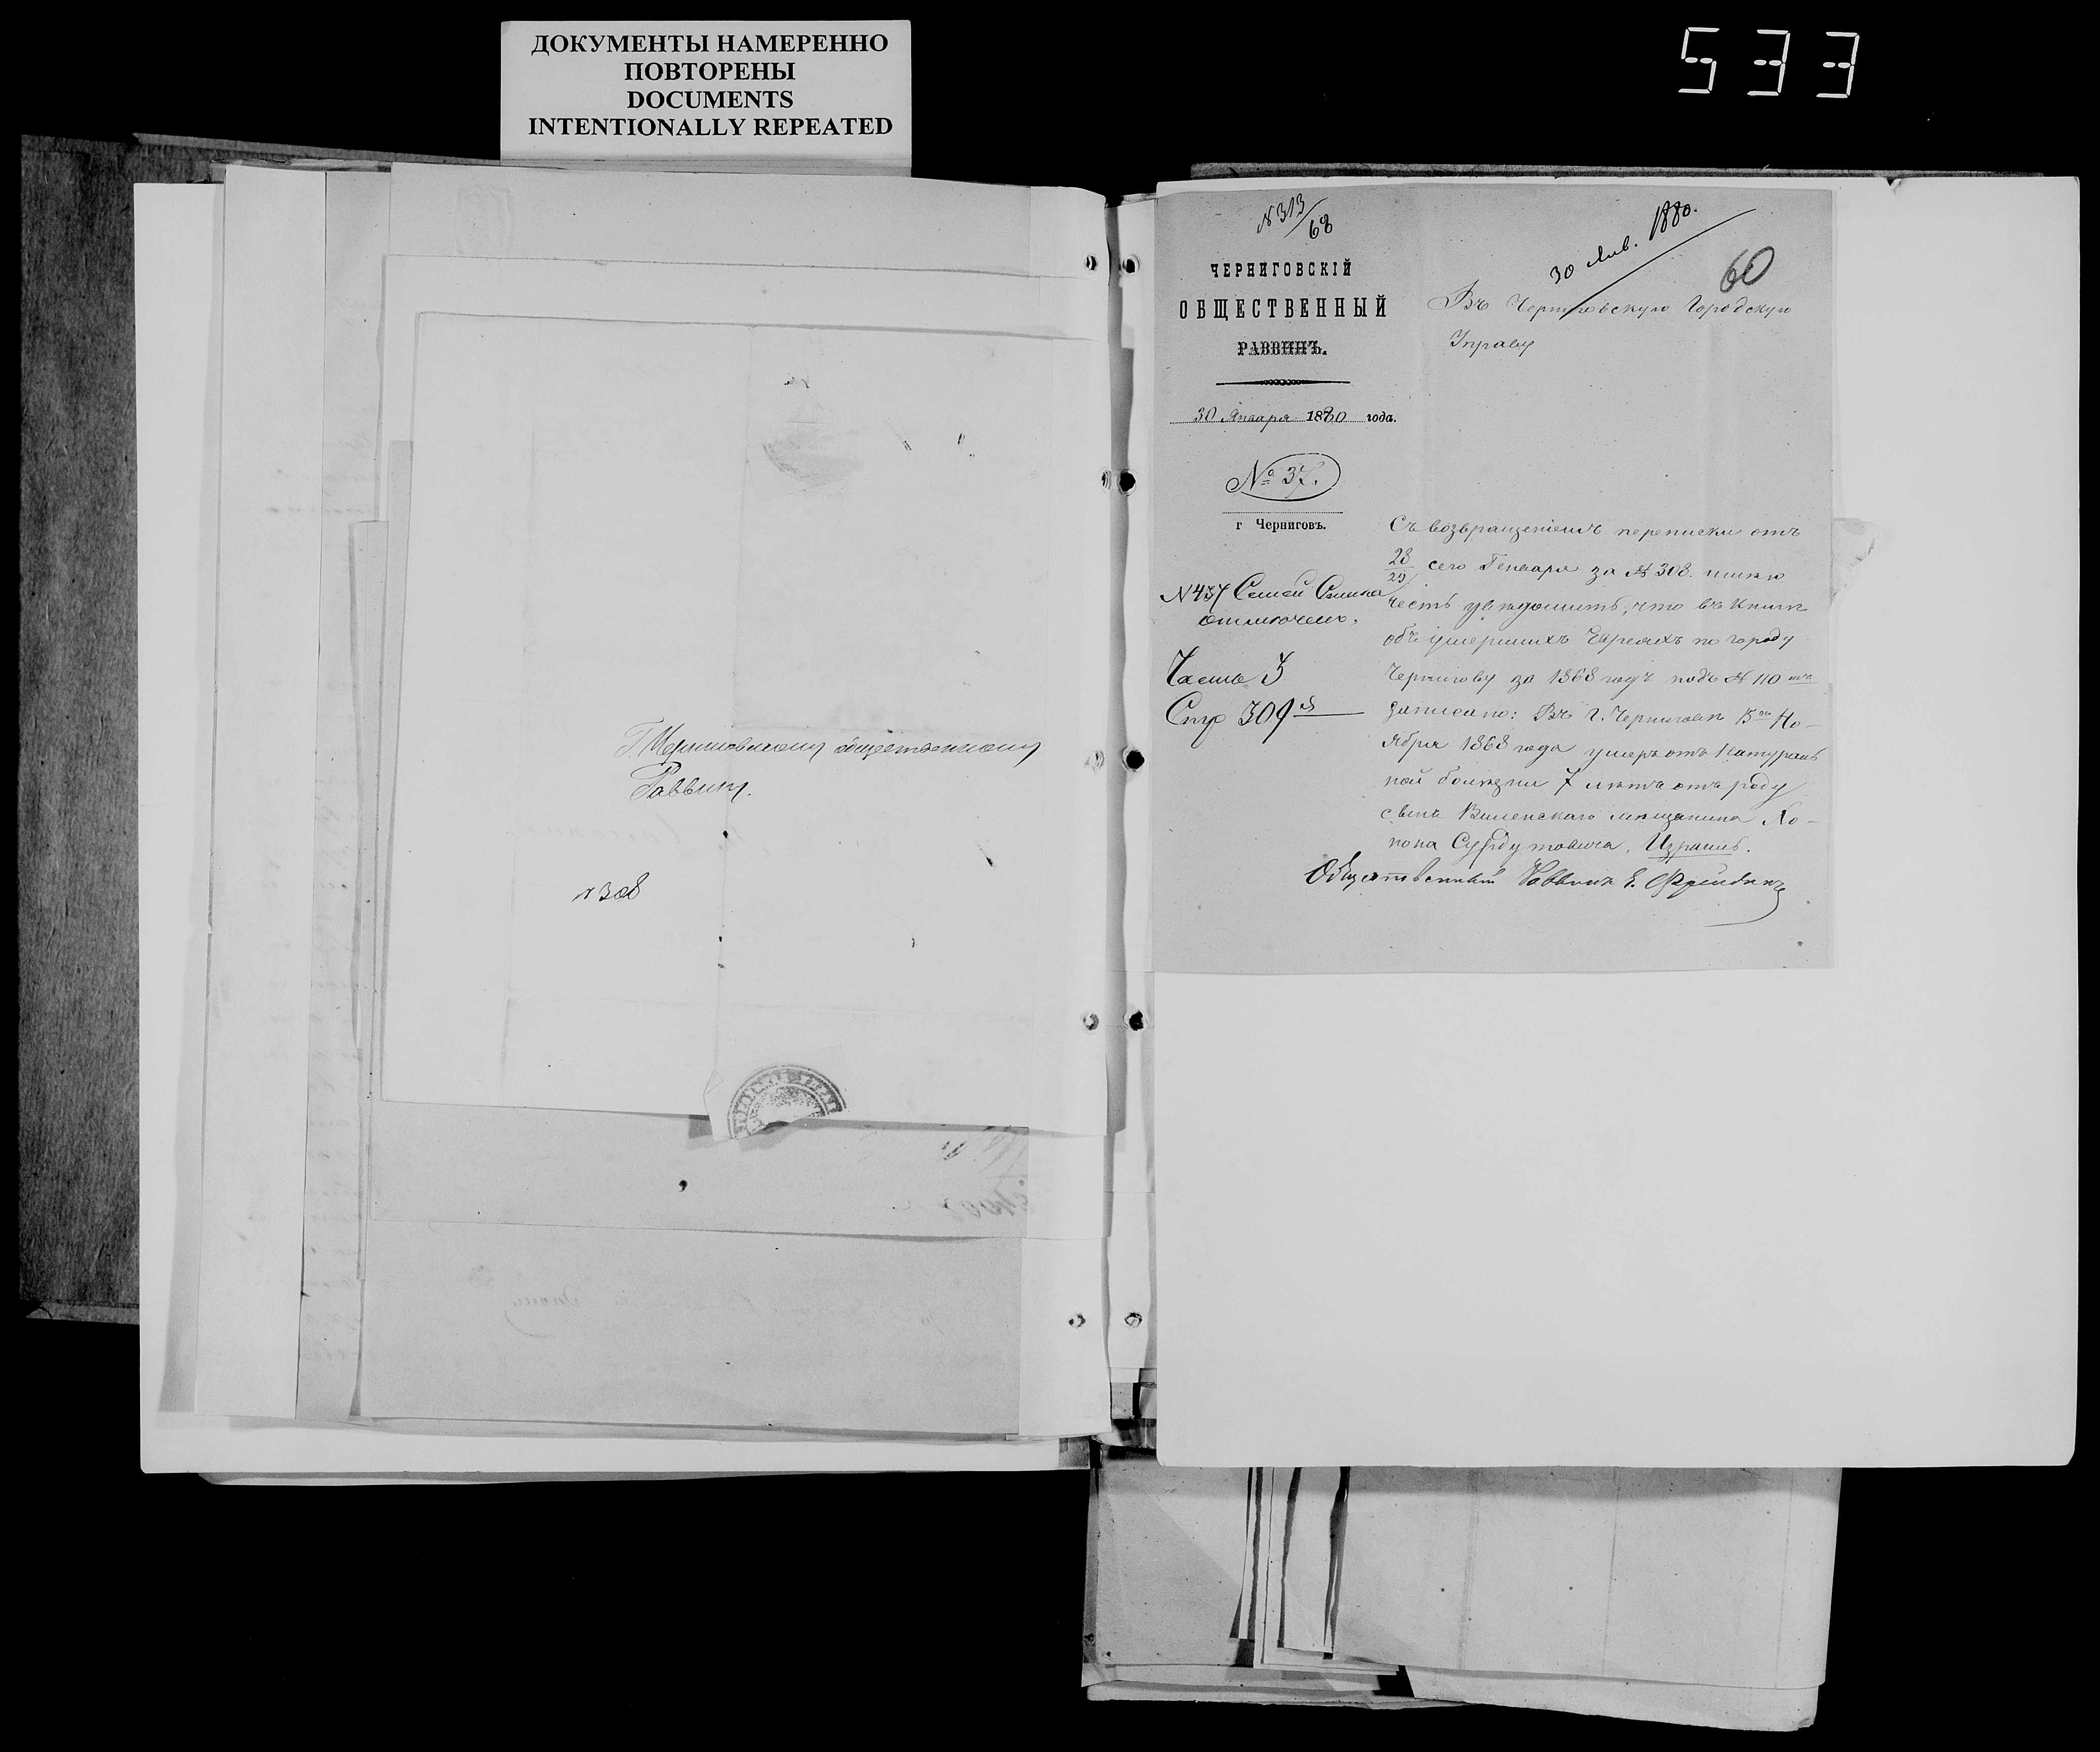 ДОКУМЕНТЫ НАМЕРЕННО
ПОВТОРЕНЫ
DOCUMENTS
INTENTIONALLY REPEATED
533
Г. Черниговскому общественному
Раввину.
№ 308
№ 313/68
ЧЕРНИГОВСКІЙ
ОБЩЕСТВЕННЫЙ
РАВВИНЪ.
30 Января 1880 года.
№ 37.
г Черниговъ.
30 Янв. 1880.
60
Въ Черниговскую Городскую
Управу
№ 437 Семей
отмечено.
Часть 3
Стр 309
Съ возвращеніемъ переписки отъ
28/29 сего Генваря за № 308. имѣю
честь увѣдомить, что въ книгѣ
объ умершихъ Евреяхъ по городу
Чернигову за 1868 годъ подъ № 110
записано: Въ г. Черниговѣ 15 Но-
ября 1868 года умеръ отъ натураль
ной болѣзни 7 лѣтъ отъ роду
сынъ Виленскаго мѣщанина Хо-
нона Израиль.
Общественный Раввинъ Е. Фрейдинъ